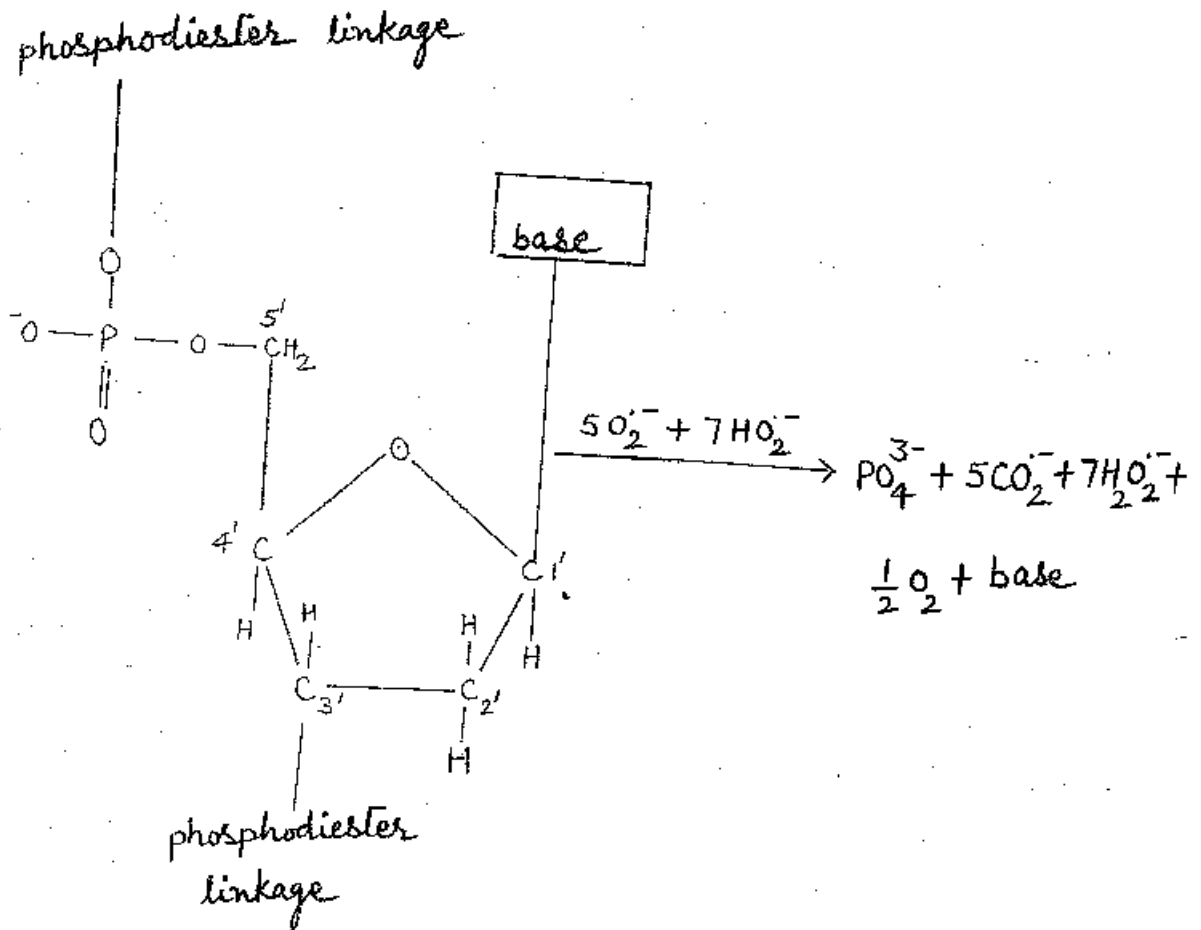 phosphodiester linkage
O
base
⁻O — P — O — CH₂
5'
O
O
5O₂˙⁻ + 7HO₂˙⁻
PO₄³⁻ + 5CO₂˙⁻ + 7H₂O₂˙⁻ +
4' C
C1'
½ O₂ + base
H
H
H
H
C₃'
C₂'
H
phosphodiester
linkage